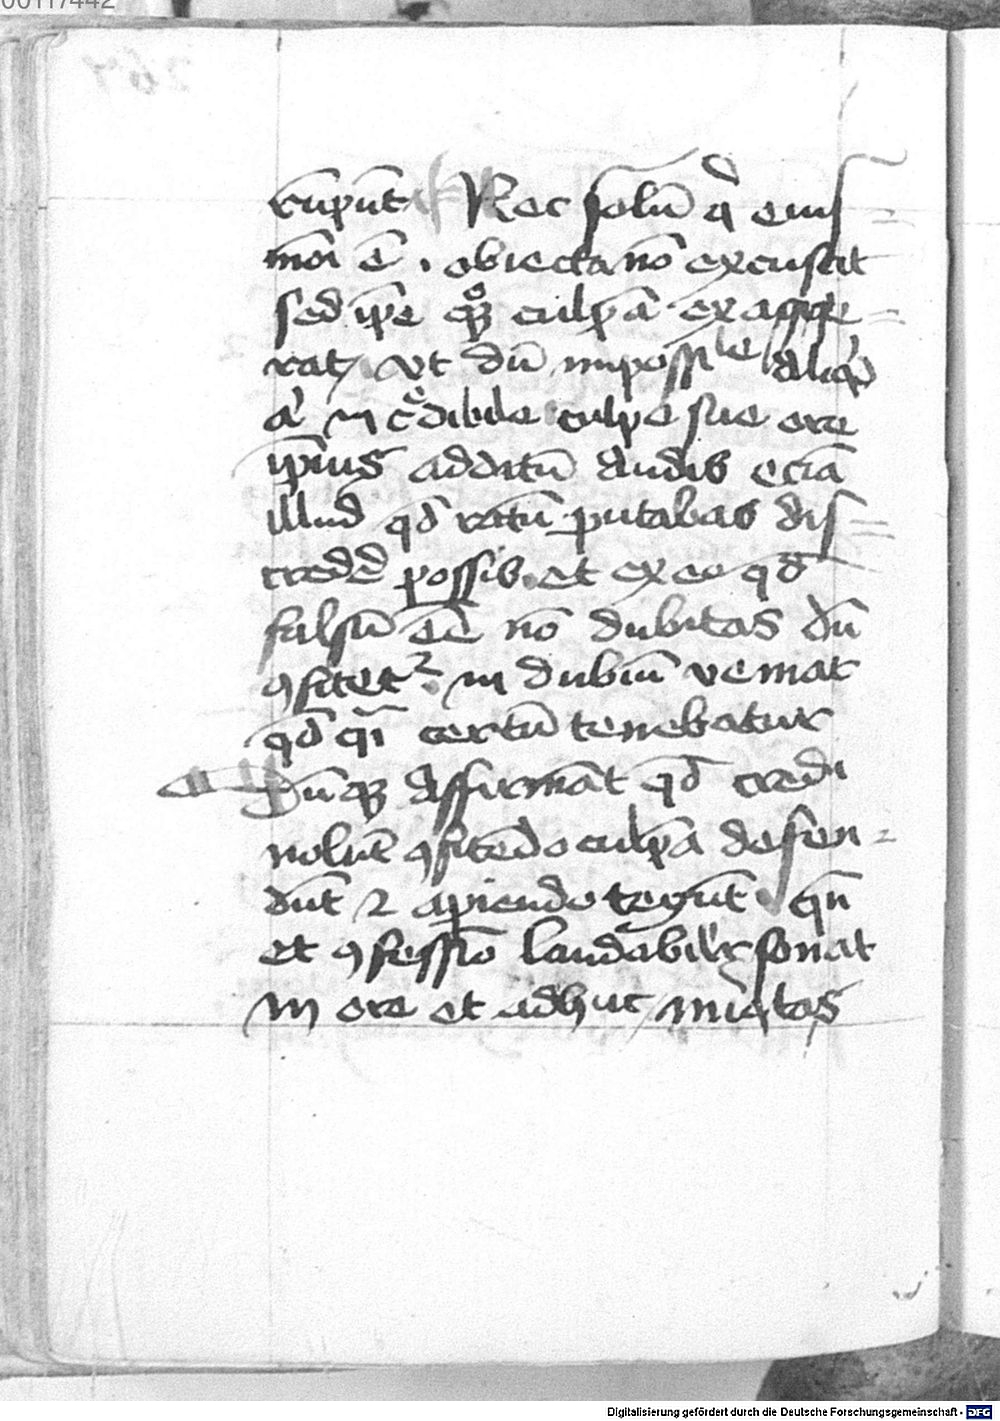 00117442
267
rūpūt Nec solū q̄ eius
mōi ē . obiecta nō excusat
sed ip̄e q̊qꝫ culpā exagge
rat / vt dū impossile aliq̄
a' incͤdibile culpe sue ore
ip̄ius additū audis eciā
illud qd̄ ratū putabas dis
cred'e possis . et ex eo qd̄
falsū eē nō dubitas dū
ꝯfitet² . in dubiū veniat
qd̄ q̄i certū tenebatur
Dūqꝫ affirmāt qd̄ credi
nolūt ꝯfitēdo culpā defen
dūt ⁊ apiendo tegūt qn̄
et ꝯfessio laudabil'r sonat
in ore et adhuc / iniq̇tas
Digitalisierung gefördert durch die Deutsche Forschungsgemeinschaft - DFG